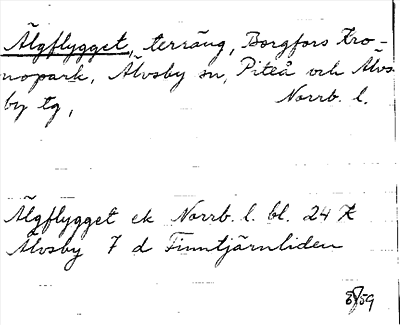 Älgflygget, terräng, Borgfors Kro-
nopark, Älvsby sn, Piteå och Älvs
by tg, Norrb. l.
Älgflygget ek Norrb. l. bl. 24 K
Älvsby 7 d Finntjärnliden